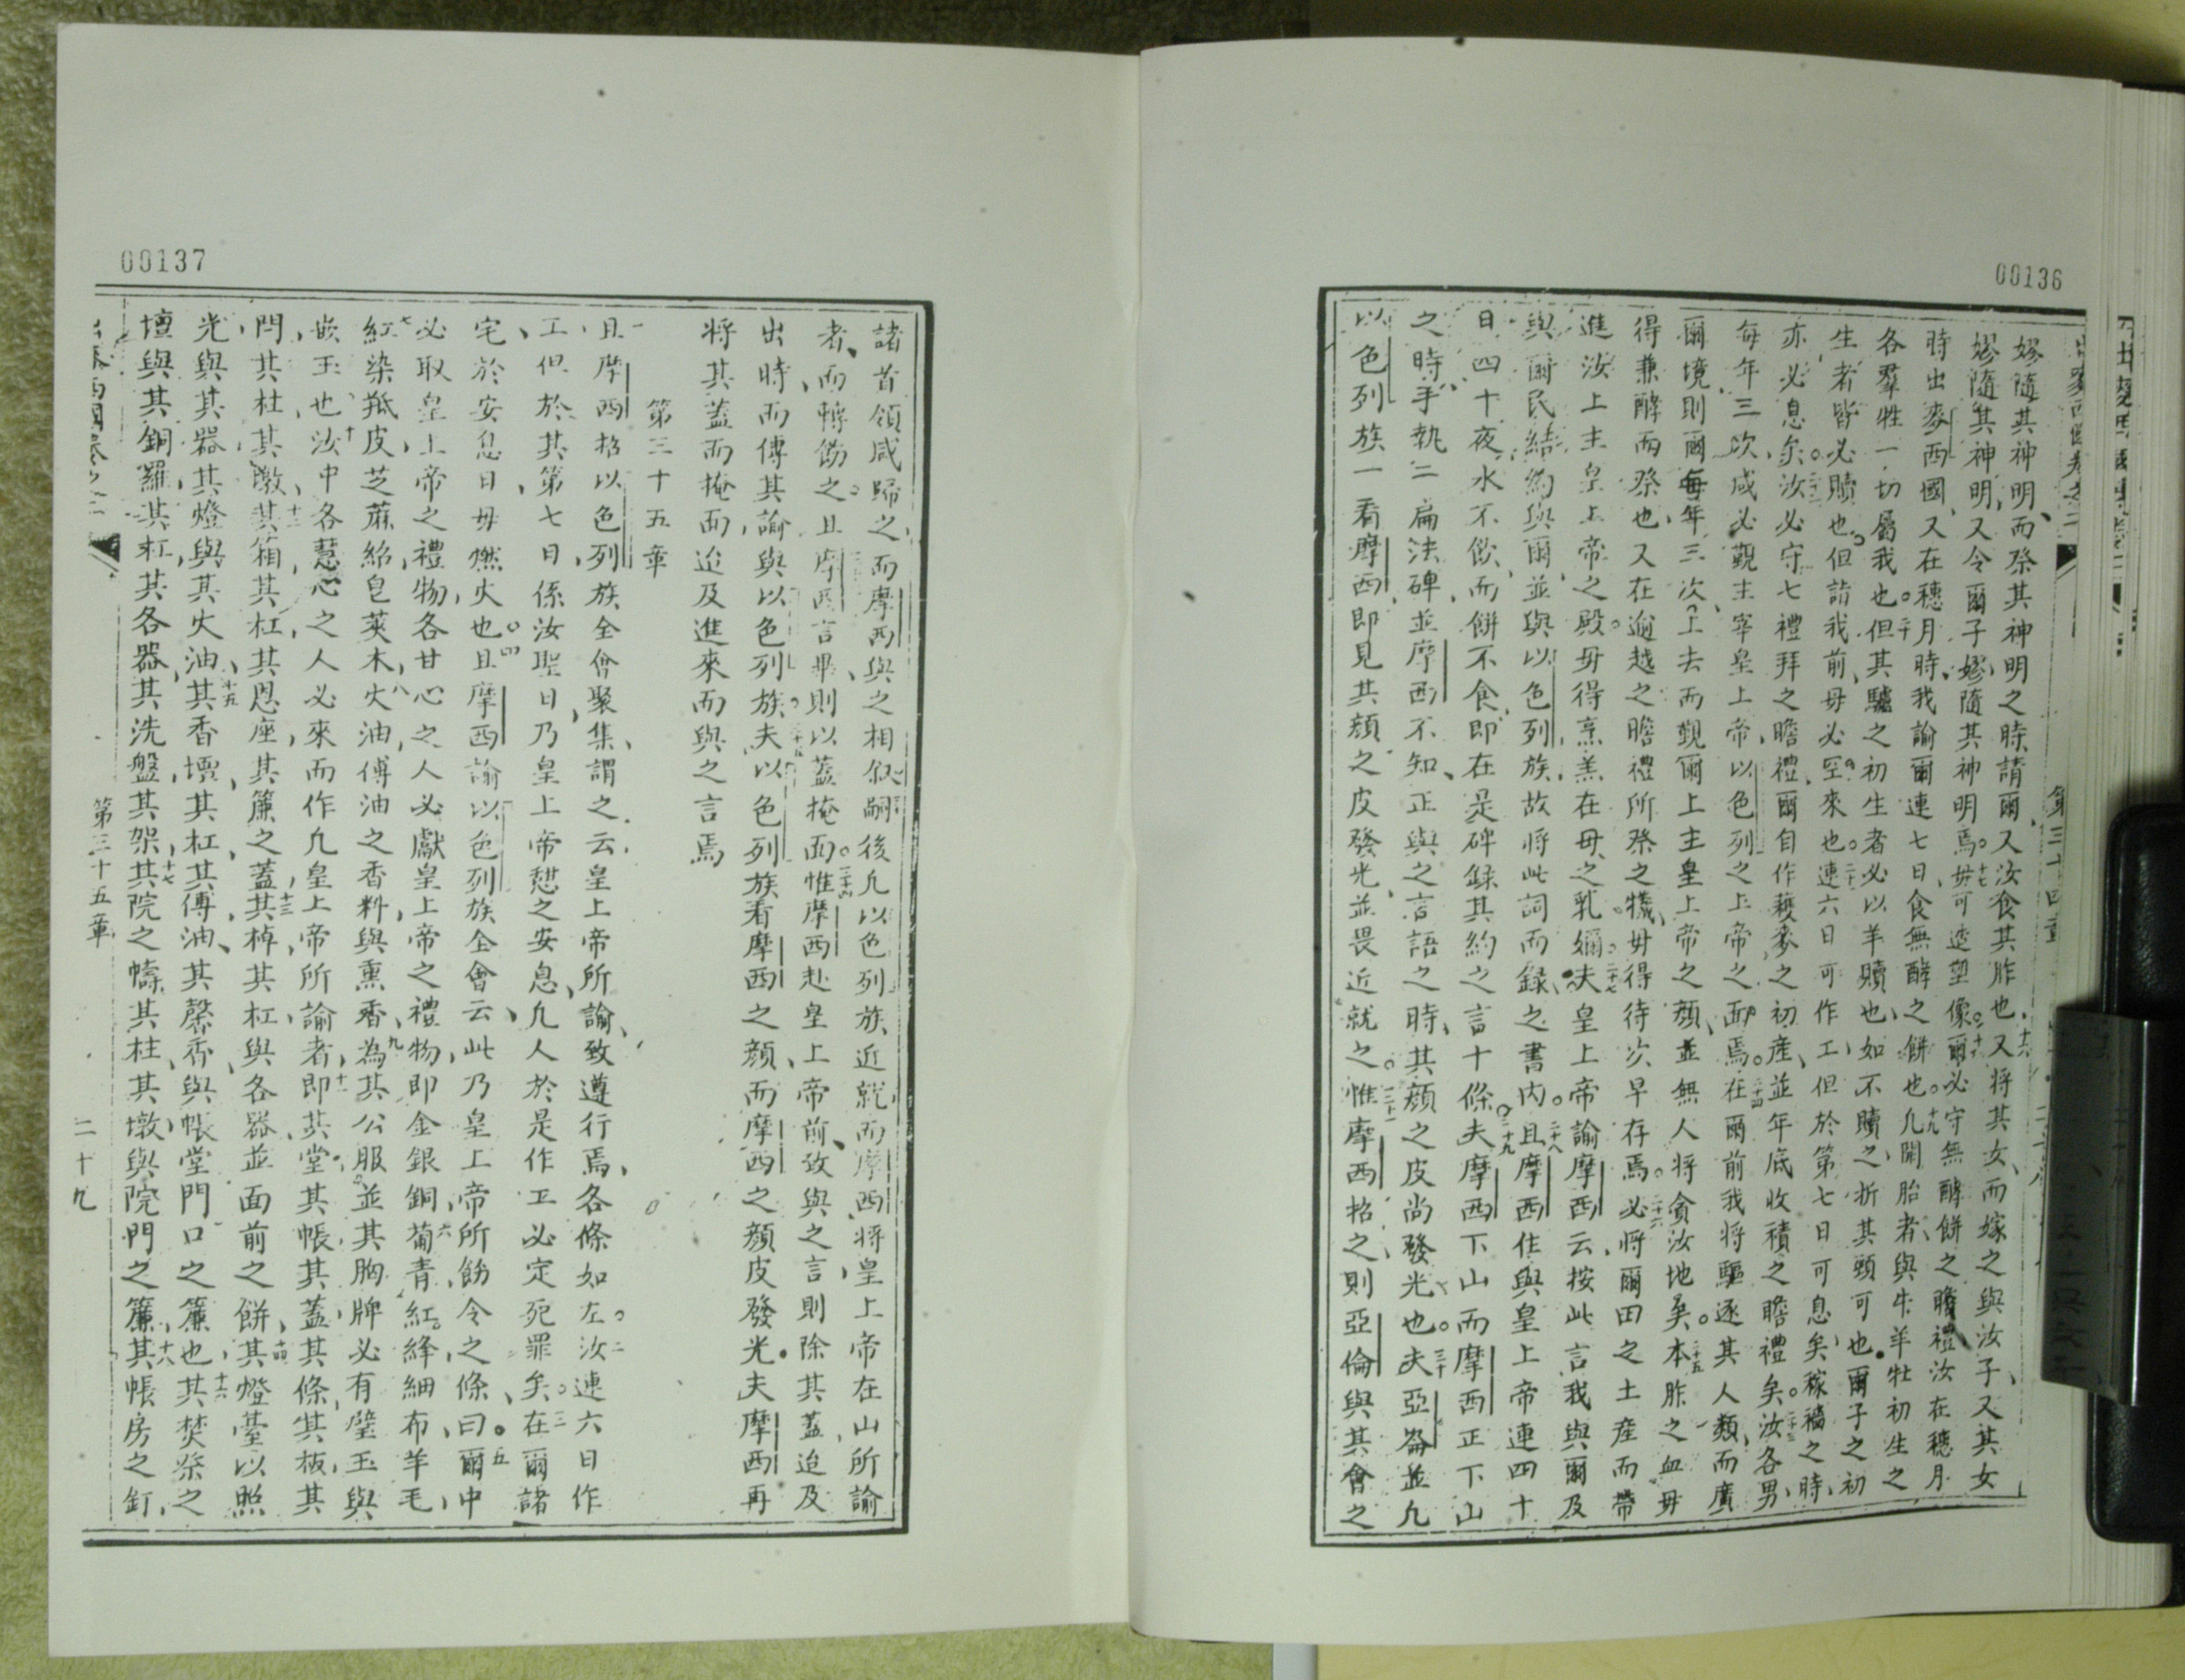 00136
第三十四章
嫪隨其神明而祭其神明之時請爾又汝食其胙也十六又將其女而嫁之與汝子又其女
嫪隨其神明又令爾子嫪隨其神明焉十七毋可造塑像十八爾必守無酵餅之瞻禮汝在穗月
時出麥西國又在穗月時我諭爾連七日食無酵之餅也十九凡開胎者與牛羊牡初生之
各羣牲一切屬我也二十但其驢之初生者必以羊贖也如不贖之折其頭可也爾子之初
生者皆必贖也但詣我前毋必空來也二十一連六日可作工但於第七日可息矣稼穡之時
亦必息尔二十二汝必守七禮拜之瞻禮爾自作穫麥之初產並年底收積之瞻禮矣二十三汝各男
每年三次咸必覲主宰皇上帝以色列之上帝之面焉二十四在爾前我將驅逐其人類而廣
爾境則爾每年三次上去而覲爾上主皇上帝之顏並無人將貪汝地矣二十五本胙之血毋
得兼酵而祭也又在逾越之瞻禮所祭之犧毋得待次早存焉二十六必將爾田之土產而帶
進汝上主皇上帝之殿毋得烹羔在母之乳嬭二十七夫皇上帝諭摩西云按此言我與爾及
與爾民結約與爾並與以色列族故將此詞而録之書内二十八且摩西住與皇上帝連四十
日四十夜水不飲而餅不食即在是碑録其約之言十條二十九夫摩西下山而摩西正下山
之時手執二扁法碑並摩西不知正與之言語之時其顏之皮尚發光也三十夫亞崙並凡
以色列族一看摩西即見其顏之皮發光並畏近就之三十一惟摩西招之則亞倫與其會之
00137
諸首領咸歸之而摩西與之相叙嗣後凡以色列族近就而摩西將皇上帝在山所諭
者而轉飭之且摩西言畢則以蓋掩面三十四惟摩西赴皇上帝前致與之言則除其蓋迨及
出時而傳其諭與以色列族三十五夫以色列族看摩西之顏而摩西之顏皮發光夫摩西再
將其蓋而掩面迨及進來而與之言焉
第三十五章
一且摩西招以色列族全會聚集謂之云皇上帝所諭致遵行焉各條如左二汝連六日作
工但於其第七日係汝聖日乃皇上帝憇之安息凡人於是作工必定死罪矣三在爾諸
宅於安息日毋燃火也四且摩西諭以色列族全會云此乃皇上帝所飭令之條曰五爾中
必取皇上帝之禮物各甘心之人必獻皇上帝之禮物即金銀銅六葡青紅絳細布羊毛
七紅染羝皮芝蔴紹皂莢木八火油傅油之香料與熏香九為其公服並其胸牌必有璧玉與
嵌玉也十汝中各慧心之人必來而作凡皇上帝所諭者十一即其堂其帳其蓋其條其板其
閂其柱其墩十二其箱其杠其恩座其簾之蓋十三其棹其杠與各器並面前之餅十四其燈臺以照
光與其器其燈與其火油十五其香壇其杠其傅油其馨香與帳堂門口之簾也十六其焚祭之
壇與其銅羅其杠其各器其洗盤其架十七其院之幬其柱其墩與院門之簾十八其帳房之釘
第三十五章
二十九